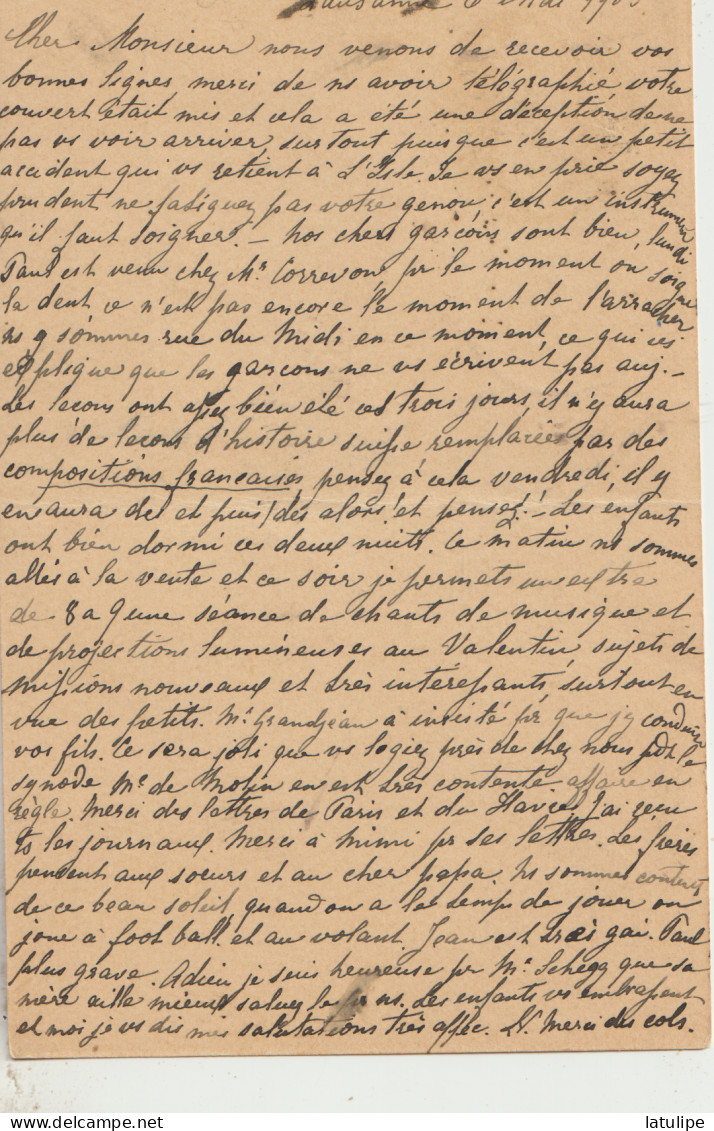 Lausanne 6 Mai 190
Cher Monsieur nous venons de recevoir vos
bonnes lignes, merci de ns avoir télégraphié votre
couvert était mis et cela a été une déception de ne
pas vs voir arriver, surtout puisque c'est un petit
accident qui vs retient à L'Isle. Je vs en prie soyez
prudent ne fatiguez pas votre genou c'est un instrument
qu'il faut soigner. – Nos chers garçons sont bien, lundi
Paul est venu chez Mr Correvon, pr le moment on soigne
la dent ce n'est pas encore le moment de l'arracher
ns y sommes rue du Midi en ce moment, ce qui vs
explique que les garçons ne vs écrivent pas auj. –
Les leçons ont assez bien été ces trois jours, il n'y aura
plus de leçons d'histoire suisse remplacées par des
compositions françaises pensez à cela vendredi, il y
en aura des et puis / des alors! et pensez! – Les enfants
ont bien dormi ces deux nuits. Ce matin ns sommes
allés à la vente et ce soir je permets un extra
de 8 a 9 une séance de chants de musique et
de projections lumineuses au Valentin, sujets de
missions nouveaux et très intéressants, surtout en
vue des petits. Mr Grandjean à insisté pr que j'y conduise
vos fils. Ce sera joli que vs logiez près de chez nous pdt le
synode Me de Molin en est très contente. affaire en
règle. Merci des lettres de Paris et du Havre, j'ai reçu
ts les journaux. Merci à Mimi pr ses lettres. Les frères
pensent aux soeurs et au cher papa. Ns sommes contents
de ce beau soleil, quand on a le temps de jouer on
joue à foot ball. et au volant. Jean est très gai. Paul
plus grave. Adieu je suis heureuse pr Mr Schegg que sa
mère aille mieux saluez le pr ns. Les enfants vs embrassent
et moi je vs dis mes salutations très affec. Merci des cols.
latulipe